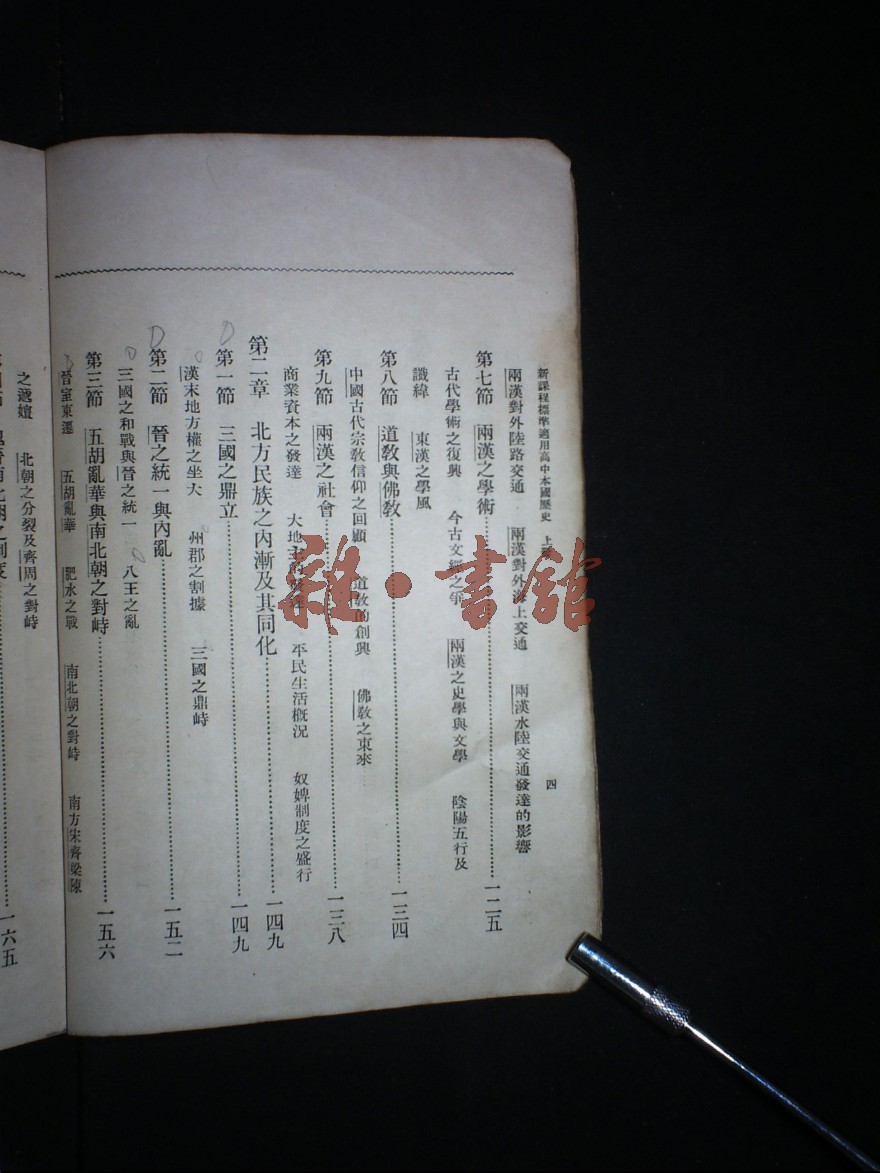 新課程標準適用高中本國歷史 上 四
兩漢對外陸路交通 兩漢對外海上交通 兩漢水陸交通發達的影響
第七節 兩漢之學術 一二五
古代學術之復興 今古文經之爭 兩漢之史學與文學 陰陽五行及
讖緯 東漢之學風
第八節 道教與佛教 一三四
中國古代宗教信仰之回顧 道教的創興 佛教之東來
第九節 兩漢之社會 一三八
商業資本之發達 大地主 平民生活概況 奴婢制度之盛行
第二章 北方民族之內漸及其同化 一四九
第一節 三國之鼎立 一四九
漢末地方權之坐大 州郡之割據 三國之鼎峙
第二節 晉之統一與內亂 一五二
三國之和戰與晉之統一 八王之亂
第三節 五胡亂華與南北朝之對峙 一五六
晉室東遷 五胡亂華 肥水之戰 南北朝之對峙 南方宋齊梁陳
之遞嬗 北朝之分裂及齊周之對峙
一六五
雜·書館